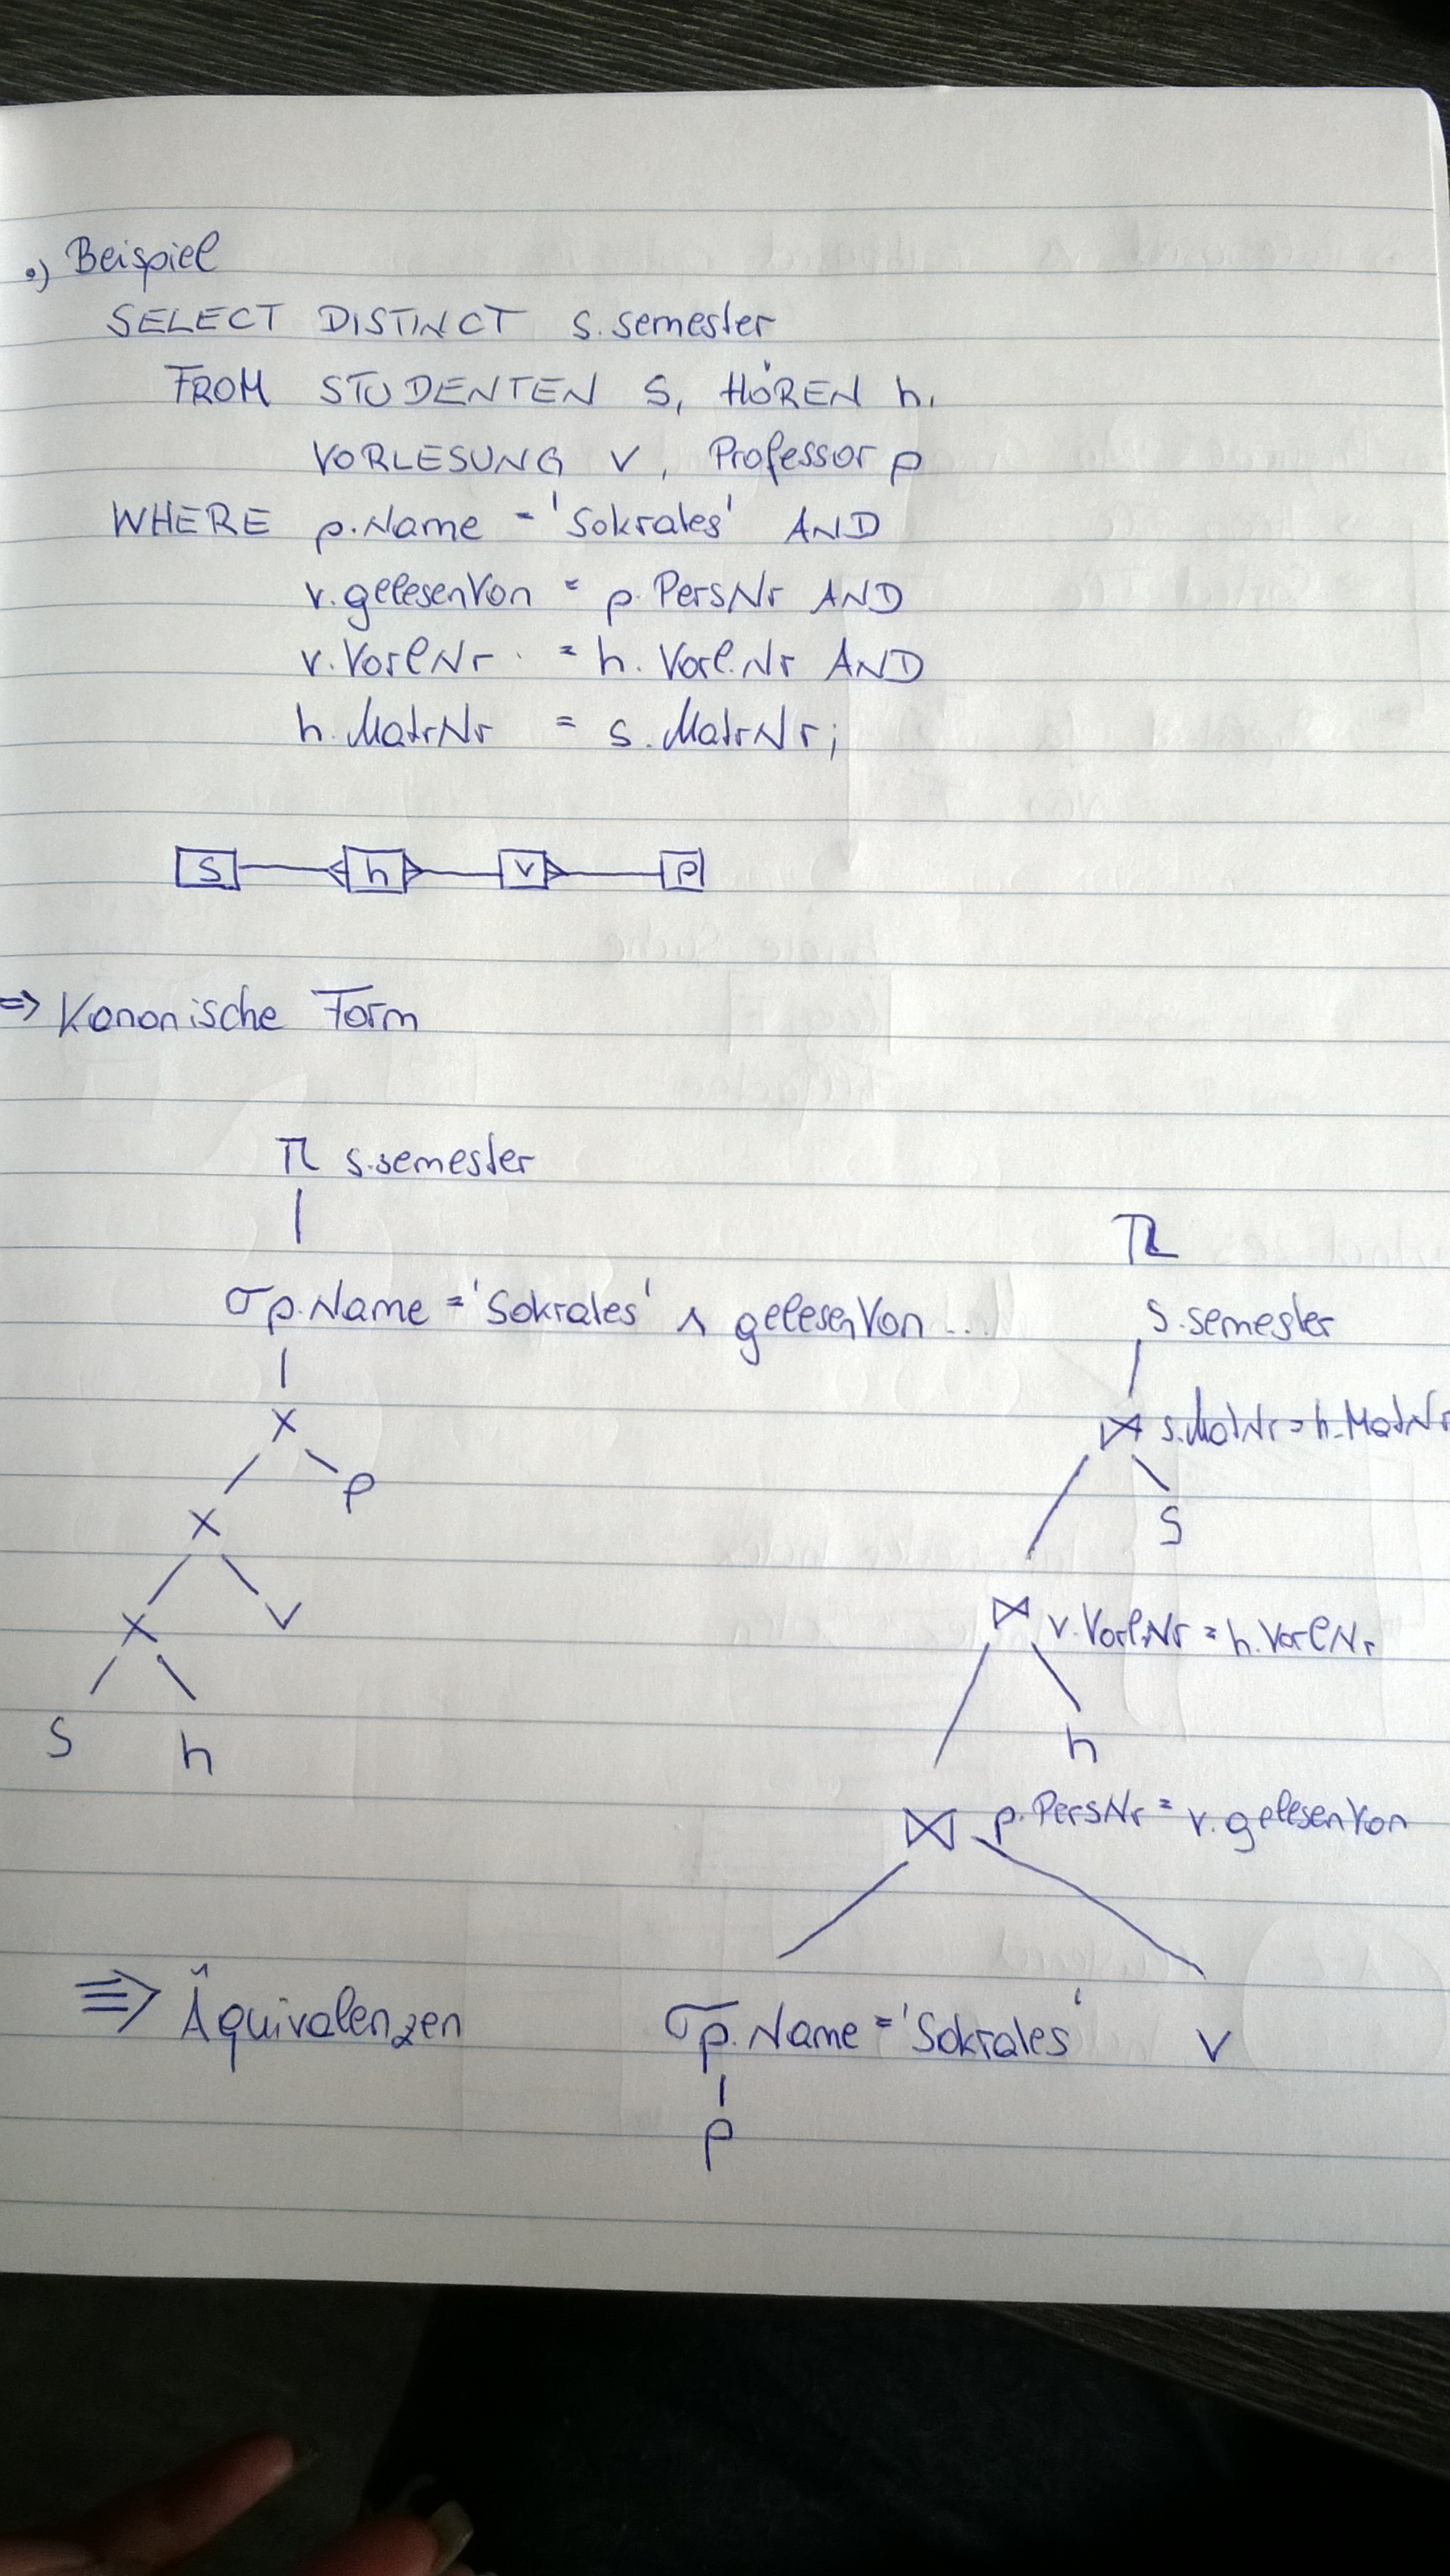 •) Beispiel
SELECT DISTINCT s.semester
FROM STUDENTEN s, HÖREN h,
VORLESUNG v, Professor p
WHERE p.Name = 'Sokrates' AND
v.gelesenVon = p.PersNr AND
v.VorlNr. = h.Vorl.Nr AND
h.MatrNr = s.MatrNr;
s h v p
=> Kanonische Form
π s.semester
σ p.Name = 'Sokrates' ∧ gelesenVon ...
x
p
x
v
x
s h
π
s.semester
⋈ s.MatNr = h.MatNr
s
⋈ v.Vorl.Nr = h.VorlNr
h
⋈ p.PersNr = v.gelesenVon
σ p.Name = 'Sokrates' v
p
=> Äquivalenzen